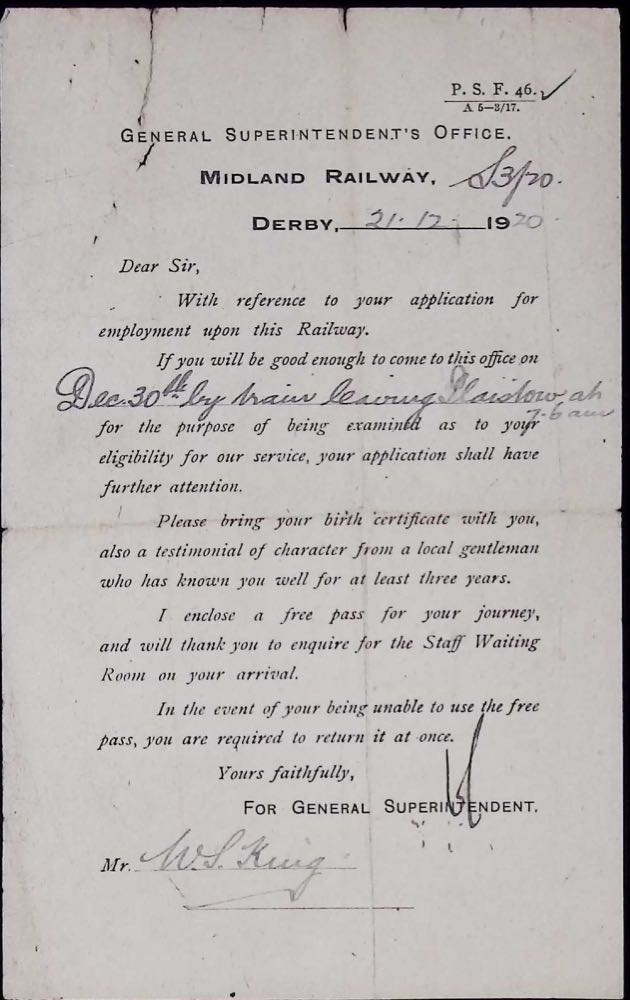 P. S. F. 46.
A 5—3/17.
GENERAL SUPERINTENDENT'S OFFICE.
MIDLAND RAILWAY,
DERBY, 21·12· 1920
Dear Sir,
With reference to your application for
employment upon this Railway.
If you will be good enough to come to this office on
Dec. 30th by train leaving Plaistow at
7-6 am
for the purpose of being examined as to your
eligibility for our service, your application shall have
further attention.
Please bring your birth certificate with you,
also a testimonial of character from a local gentleman
who has known you well for at least three years.
I enclose a free pass for your journey,
and will thank you to enquire for the Staff Waiting
Room on your arrival.
In the event of your being unable to use the free
pass, you are required to return it at once.
Yours faithfully,
FOR GENERAL SUPERINTENDENT.
Mr. W. S. King